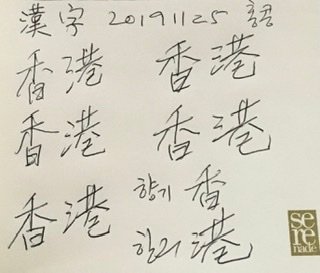 漢字 20191125 홍콩
香港 香港
香港 香港
香港 향기 香
항구 港
se
re
nade